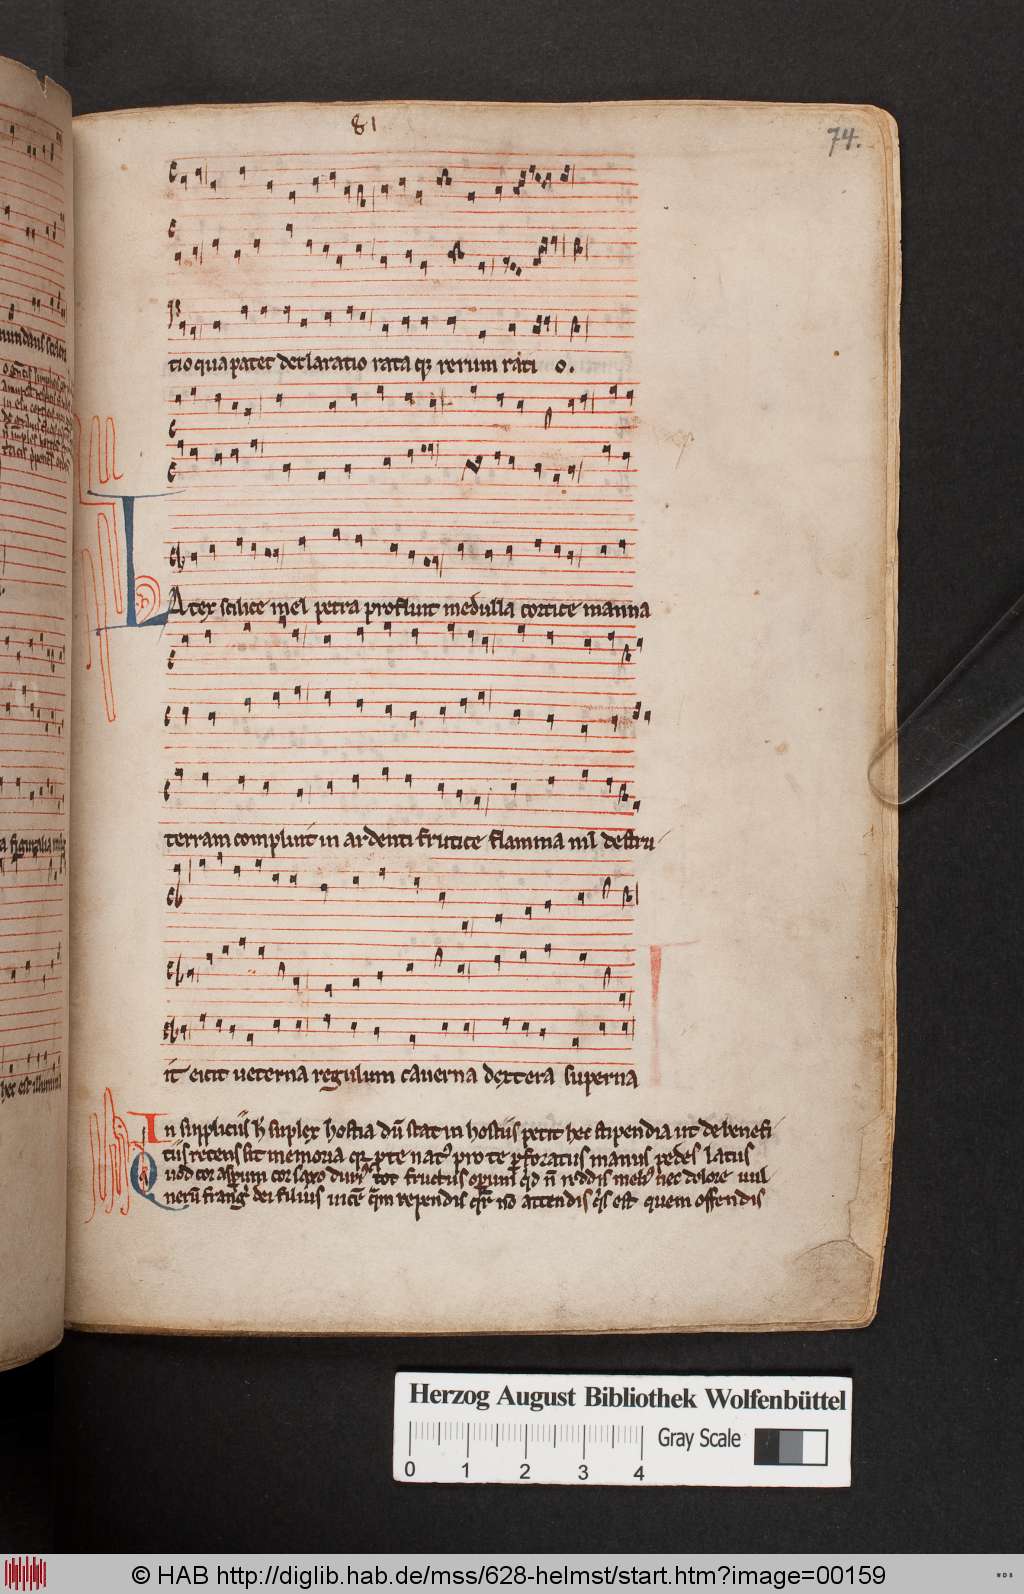 81
74.
tio qua patet declaratio rata qz rerum rati o.
Latex silice mel petra profluit medulla cortice manna
terram compluit in ardenti frutice flamma nil destru
it eicit veterna regulum caverna dextera superna
In supliciis h suplex hostia dū stat in hostiis petit hec stipendia ut de benefi
ciis recens sit memoria qr p te natꝰ pro te pforatus manus pedes latus
Quod cor asperum cor saxo duriꝰ tot fructus operum qd n reddis meliꝰ nec dolore vul
nerū frangꝰ dei filius vicē qm rependis qr nō attendis qs est quem offendis
Herzog August Bibliothek Wolfenbüttel
Gray Scale
0 1 2 3 4
© HAB http://diglib.hab.de/mss/628-helmst/start.htm?image=00159